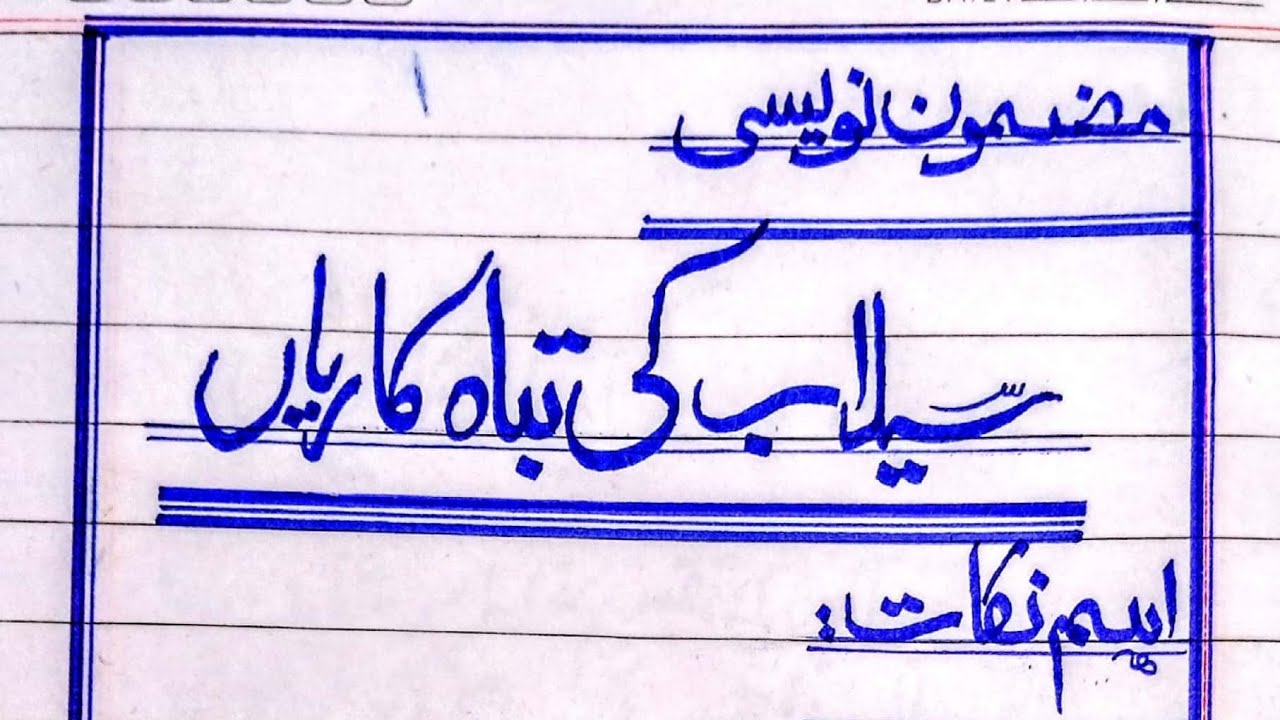 مضمون نویسی
سیلاب کی تباہ کاریاں
اہم نکات: